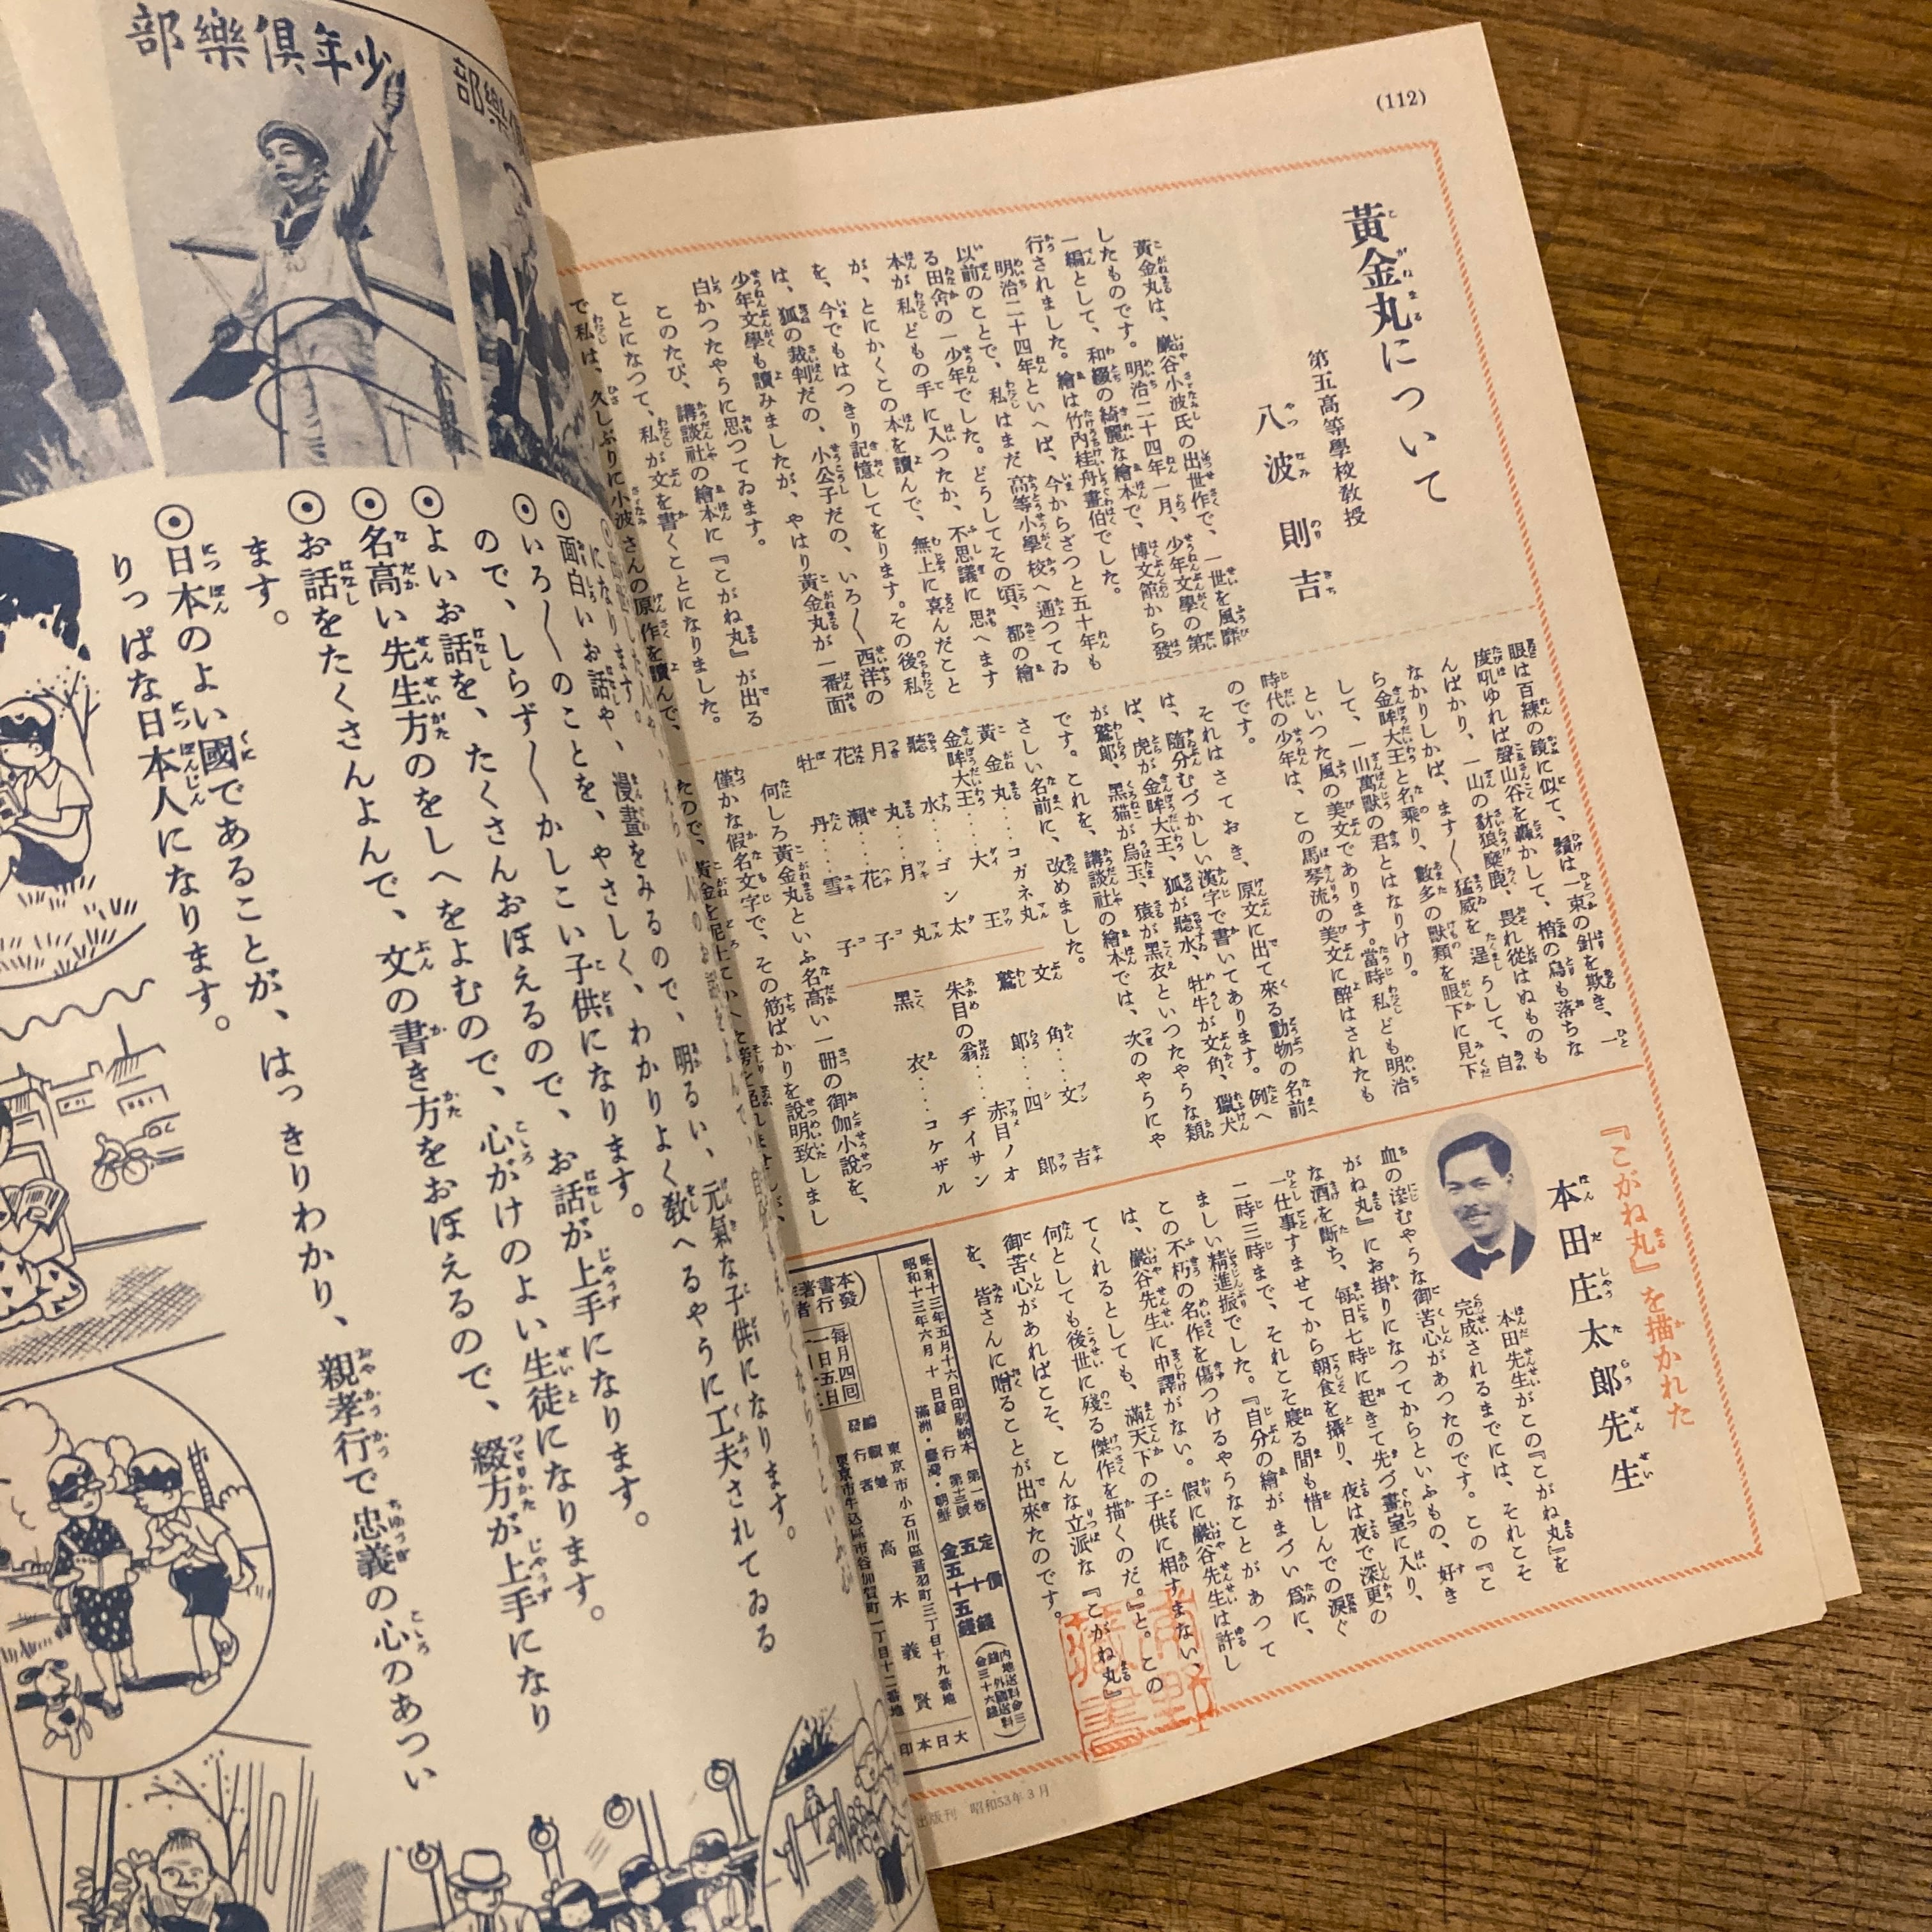 (112)
黃金丸について
第五高等學校敎授
八波則吉
黃金丸は、巖谷小波氏の出世作で、一世を風靡
したものです。明治二十四年一月、少年文學の第
一編として、和綴の綺麗な繪本で、博文館から發
行されました。繪は竹內桂舟畫伯でした。
明治二十四年といへば、今からざつと五十年も
以前のことで、私はまだ高等小學校へ通つてゐ
る田舍の一少年でした。どうしてその頃、都の繪
本が私どもの手に入つたか、不思議に思へます
が、とにかくこの本を讀んで、無上に喜んだこと
を、今でもはつきり記憶してをります。その後私
は、狐の裁判だの、小公子だの、いろ〳〵西洋の
少年文學も讀みましたが、やはり黃金丸が一番面
白かつたやうに思つてゐます。
このたび、講談社の繪本に『こがね丸』が出る
ことになつて、私が文を書くことになりました。
で私は、久しぶりに小波さんの原作を讀んで、
眼は百練の鏡に似て、鬚は一束の針を欺き、一
度吼ゆれば聲山谷を轟かして、梢の鳥も落ちな
んばかり、一山の豺狼麋鹿、畏れ從はぬものも
なかりしかば、ます〳〵猛威を逞うして、自
ら金眸大王と名乘り、數多の獸類を眼下に見下
して、一山萬獸の君とはなりけり。
といつた風の美文であります。當時私ども明治
時代の少年は、この馬琴流の美文に醉はされたも
のです。
それはさておき、原文に出て來る動物の名前
は、隨分むづかしい漢字で書いてあります。例へ
ば、虎が金眸大王、狐が聽水、牡牛が文角、獵犬
が鷲郎、黑猫が烏玉、猿が黑衣といつたやうな類
です。これを、講談社の繪本では、次のやうにや
さしい名前に、改めました。
黃金丸‥‥コガネ丸
金眸大王‥‥大王
聽水‥‥ゴン太
月丸‥‥月丸
花瀨‥‥花子
牡丹‥‥雪子
文角‥‥文吉
鷲郎‥‥四郎
朱目の翁‥‥赤目ノオヂイサン
黑衣‥‥コケザル
何しろ黃金丸といふ名高い一冊の御伽小說を、
僅かな假名文字で、その筋ばかりを說明致しまし
『こがね丸』を描かれた
本田庄太郎先生
本田先生がこの『こがね丸』を
完成されるまでには、それこそ
血の滲むやうな御苦心があつたのです。この『こ
がね丸』にお掛りになつてからといふもの、好き
な酒を斷ち、每日七時に起きて先づ畫室に入り、
一仕事すませてから朝食を攝り、夜は夜で深更の
二時三時まで、それこそ寢る間も惜しんでの淚ぐ
ましい精進振でした。『自分の繪がまづい爲に、
この不朽の名作を傷つけるやうなことがあつて
は、巖谷先生に申譯がない。假に巖谷先生は許し
てくれるとしても、滿天下の子供に相すまない、
何としても後世に殘る傑作を描くのだ。』と。この
御苦心があればこそ、こんな立派な『こがね丸』
を、皆さんに贈ることが出來たのです。
昭和十三年五月十六日印刷納本 第一卷
昭和十三年六月十日發行 第十三號
滿洲・臺灣・朝鮮
定價
五十錢
金五十五錢
每月四回
東京市小石川區音羽町三丁目十九番地
高木義賢
東京市牛込區市谷加賀町一丁目十二番地
大日本印
出版刊 昭和53年3月
少年俱樂部
になります。
◉面白いお話や、漫畫をみるので、明るい、元氣な子供になります。
◉いろ〳〵のことを、やさしく、わかりよく敎へるやうに工夫されてゐる
ので、しらず〳〵かしこい子供になります。
◉よいお話を、たくさんおぼえるので、お話が上手になります。
◉名高い先生方のをしへをよむので、心がけのよい生徒になります。
◉お話をたくさんよんで、文の書き方をおぼえるので、綴方が上手になり
ます。
◉日本のよい國であることが、はっきりわかり、親孝行で忠義の心のあつい
りっぱな日本人になります。